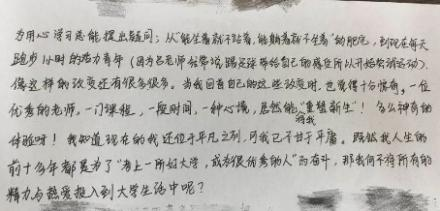 为用心学习总能提出疑问；从“能坐着就不站着，能躺着就不坐着”的肥宅，到现在每天
跑步1小时的活力青年（因为吕老师经常说踢足球带给自己的感悟所以开始尝试运动）。
像这样的改变还有很多很多。当我回首自己的这些改变时，也觉得十分惊奇，一位
优秀的老师，一门课程，一段时间，一种心境，居然能让我“重塑新生”！多么神奇的
体验呀！我知道现在的我还位于平凡之列，可我已不甘于平庸。既然我人生的
前十多年都是为了“考上一所好大学，成为很优秀的人”而奋斗，那我何不将所有的
精力与热爱投入到大学生活中呢？